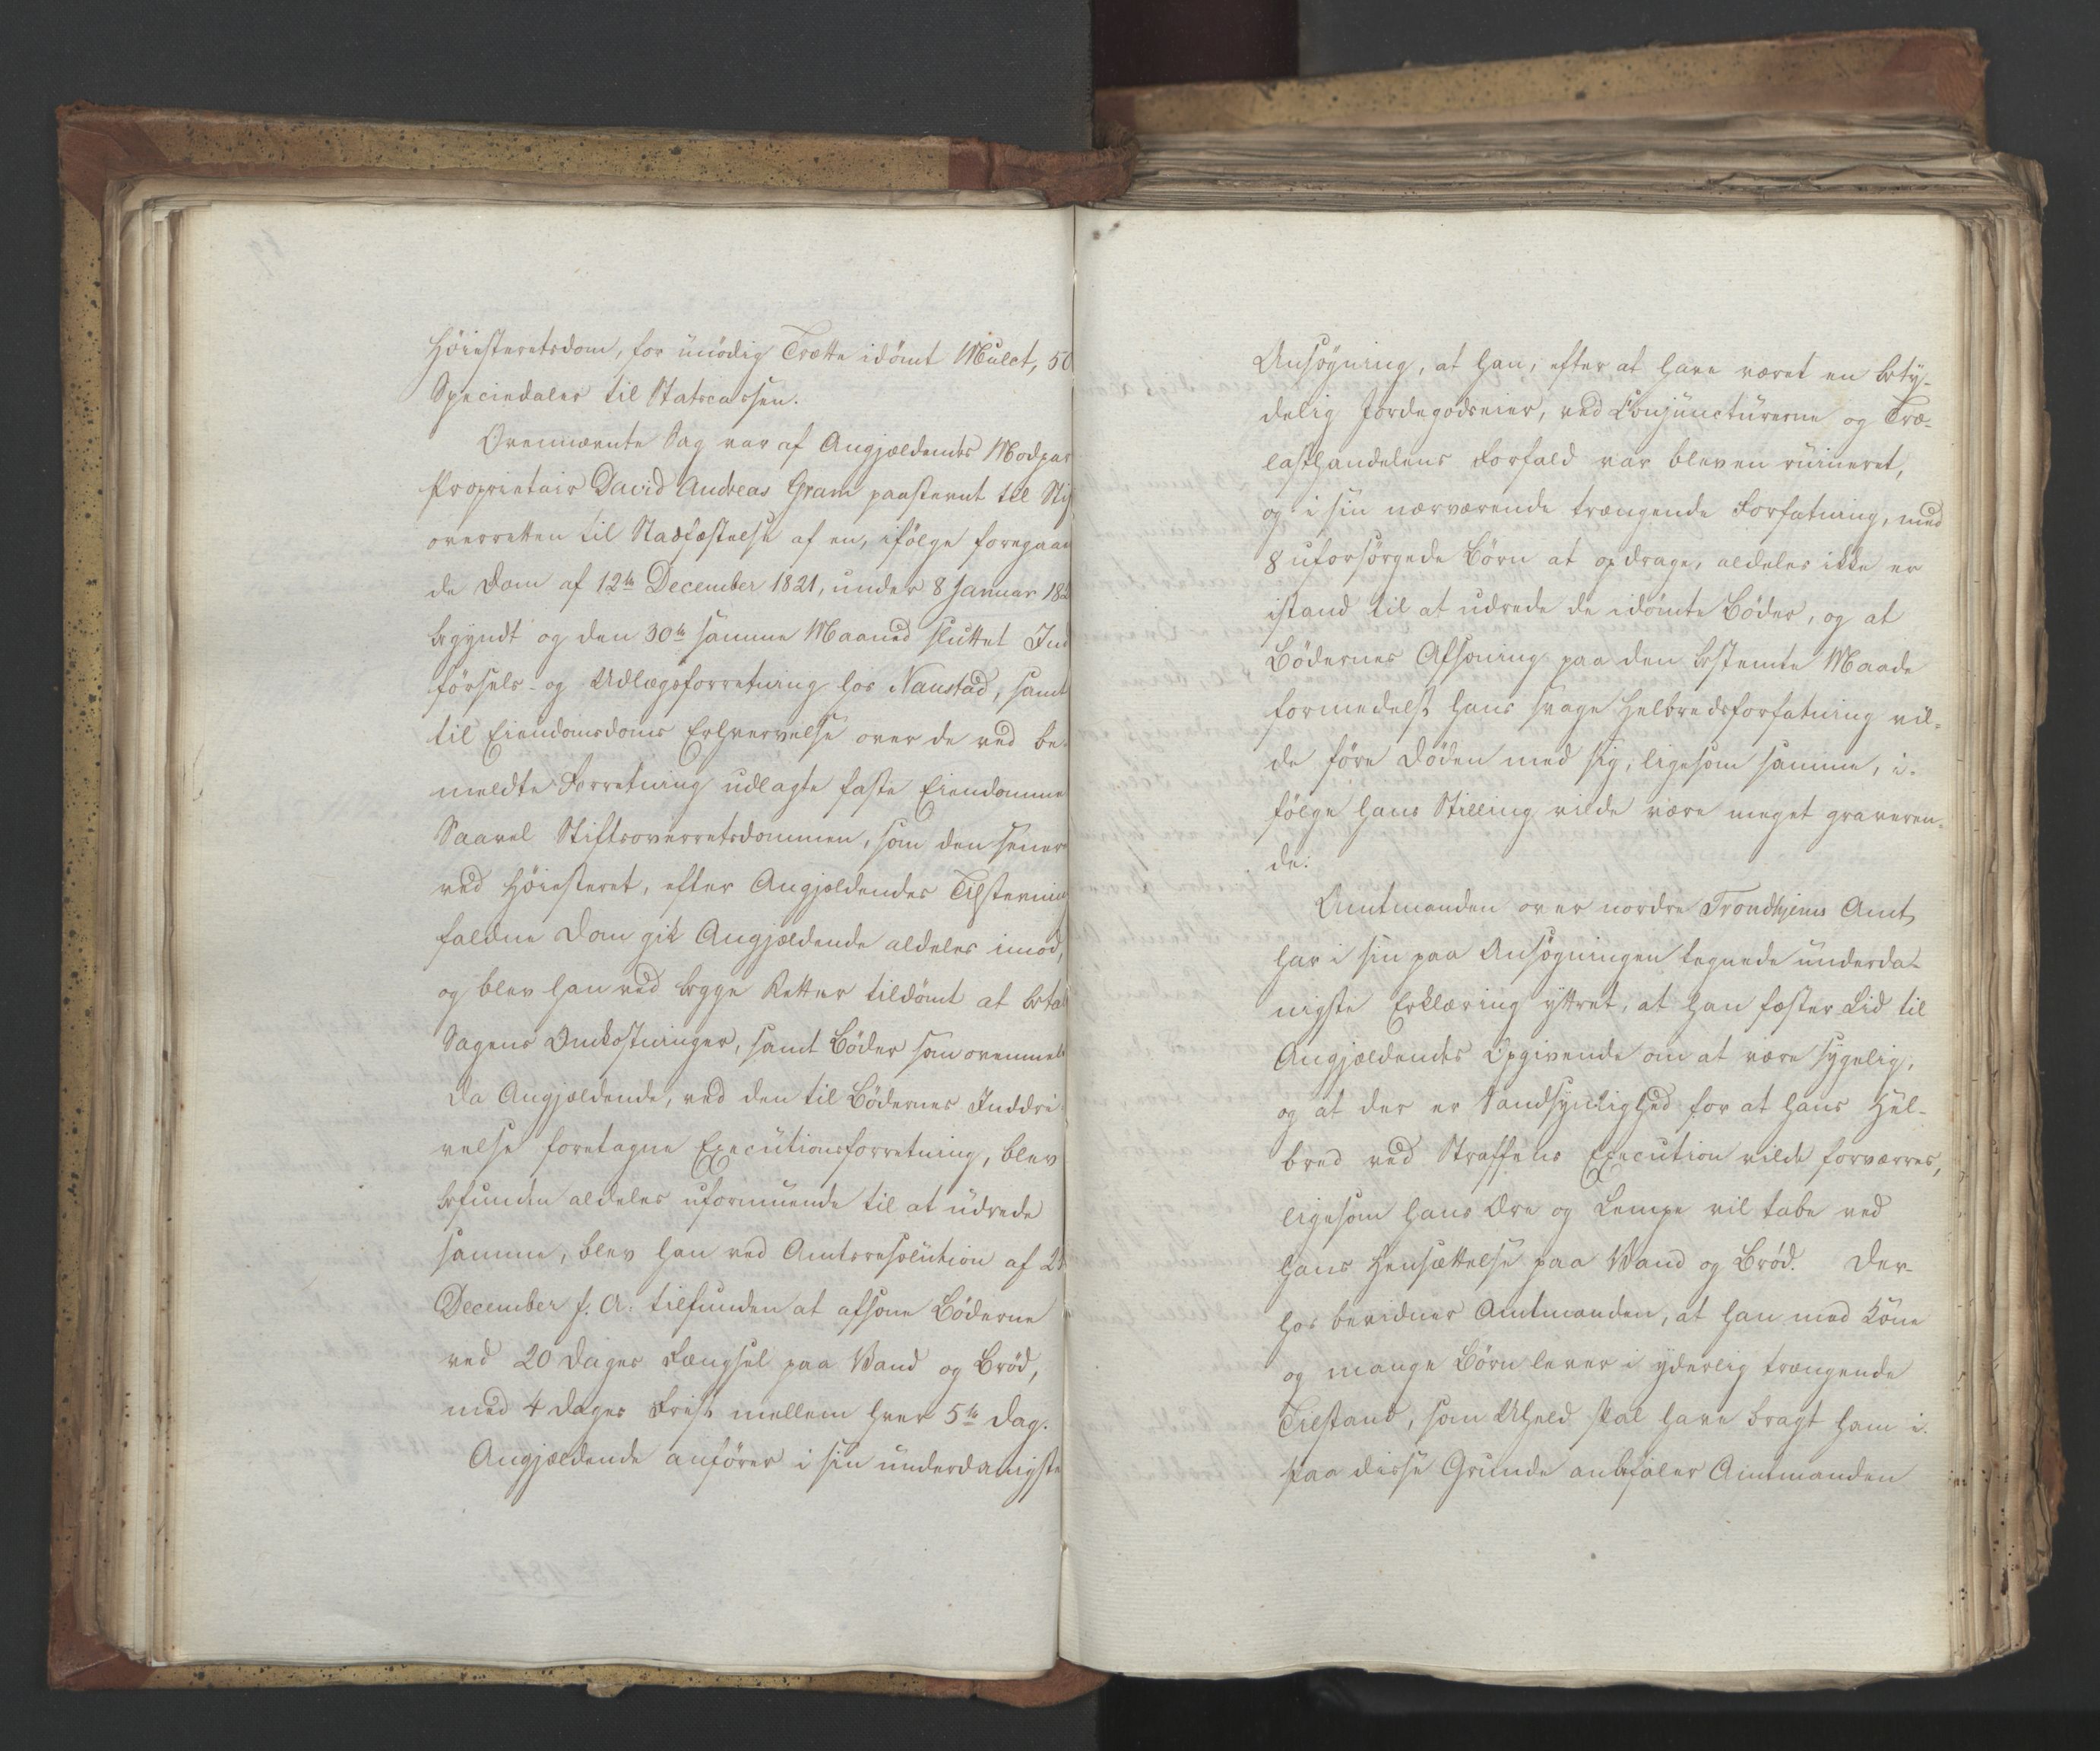 Höiesteretsdom, for unödig Trætte idömt Mulct, 50
Speciedaler til Statscassen.
Ovennævnte Sag var af Angjældendes Modpar
Proprietair David Andreas Gram paastevnt til Stif
overretten til Stadfæstelse af en, ifölge foregaaen
de Dom af 12te December 1821, under 8 Januar 182
begyndt og den 30te samme Maaned sluttet Ind
försels- og Udlægsforretning hos Naustad, samt
til Eiendomsdoms Erhvervelse over de ved be-
meldte Forretning udlagte faste Eiendomme
Saavel Stiftsoverretsdommen, som den sener
ved Höiesteret, efter Angjældendes Tilstevning
faldne Dom gik Angjældende aldeles imod,
og blev han ved begge Retter tildömt at betal
Sagens Omkostninger, samt Böder som ovenmel
Da Angjældende, ved den til Bödernes Inddri-
velse foretagne Executionsforretning, blev
befunden aldeles uformuende til at udrede
samme, blev han ved Amtsresolution af 23
December f. A. tilfunden at afsone Böderne
ved 20 Dages Fængsel paa Vand og Bröd,
med 4 Dages Frist mellem hver 5te Dag.
Angjældende anförer i sin underdanigste
Ansögning, at han, efter at have været en bety-
delig Jordegodseier, ved Conjuncturerne og Træ-
lasthandelens Forfald var bleven ruineret,
og i sin nærværende trængende Forfatning, med
8 uforsörgede Börn at opdrage, aldeles ikke er
istand til at udrede de idömte Böder, og at
Bödernes Afsoning paa den bestemte Maade
formedelst hans svage Helbredsforfatning vil-
de före Döden med sig, ligesom samme, i-
fölge hans Stilling vilde være meget graveren-
de.
Amtmanden over nordre Trondhjems Amt
har i sin paa Ansögningen tegnede underda-
nigste Erklæring yttret, at han fæster Lid til
Angjældendes Opgivende om at være sygelig,
og at der er Sandsynlighed for at hans Hel-
bred ved Straffens Execution vilde forværres,
ligesom hans Ære og Lempe vil tabe ved
hans Hensættelse paa Vand og Bröd. Der-
hos bevidner Amtmanden, at han med Kone
og mange Börn lever i yderlig trængende
Tilstand, som Uheld skal have bragt ham i.
Paa disse Grunde anbefaler Amtmanden